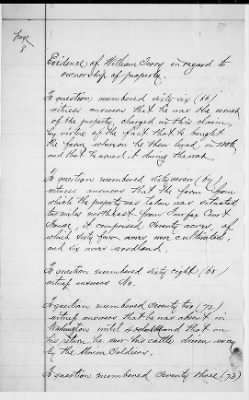 Page
8
Evidence of William Terry in regard to
ownership of property.
To question numbered sixty six (66)
witness answers that he was the owner
of the property charged in this claim,
by virtue of the fact that he bought
the farm whereon he then lived, in
and that he owned it during the war.
To question numbered sixty seven (67)
witness answers that the farm upon
which the property was taken was situated
two miles northeast from Fairfax Court
House, it comprised seventy acres, of
which sixty four acres were cultivated,
and six acres woodland.
To question numbered sixty eight (68)
witness answers No.
To question numbered seventy two (72)
witness answers that he was absent in
Washington until and that on
his return he saw his cattle driven away
by the Union Soldiers.
To question numbered seventy three (73)